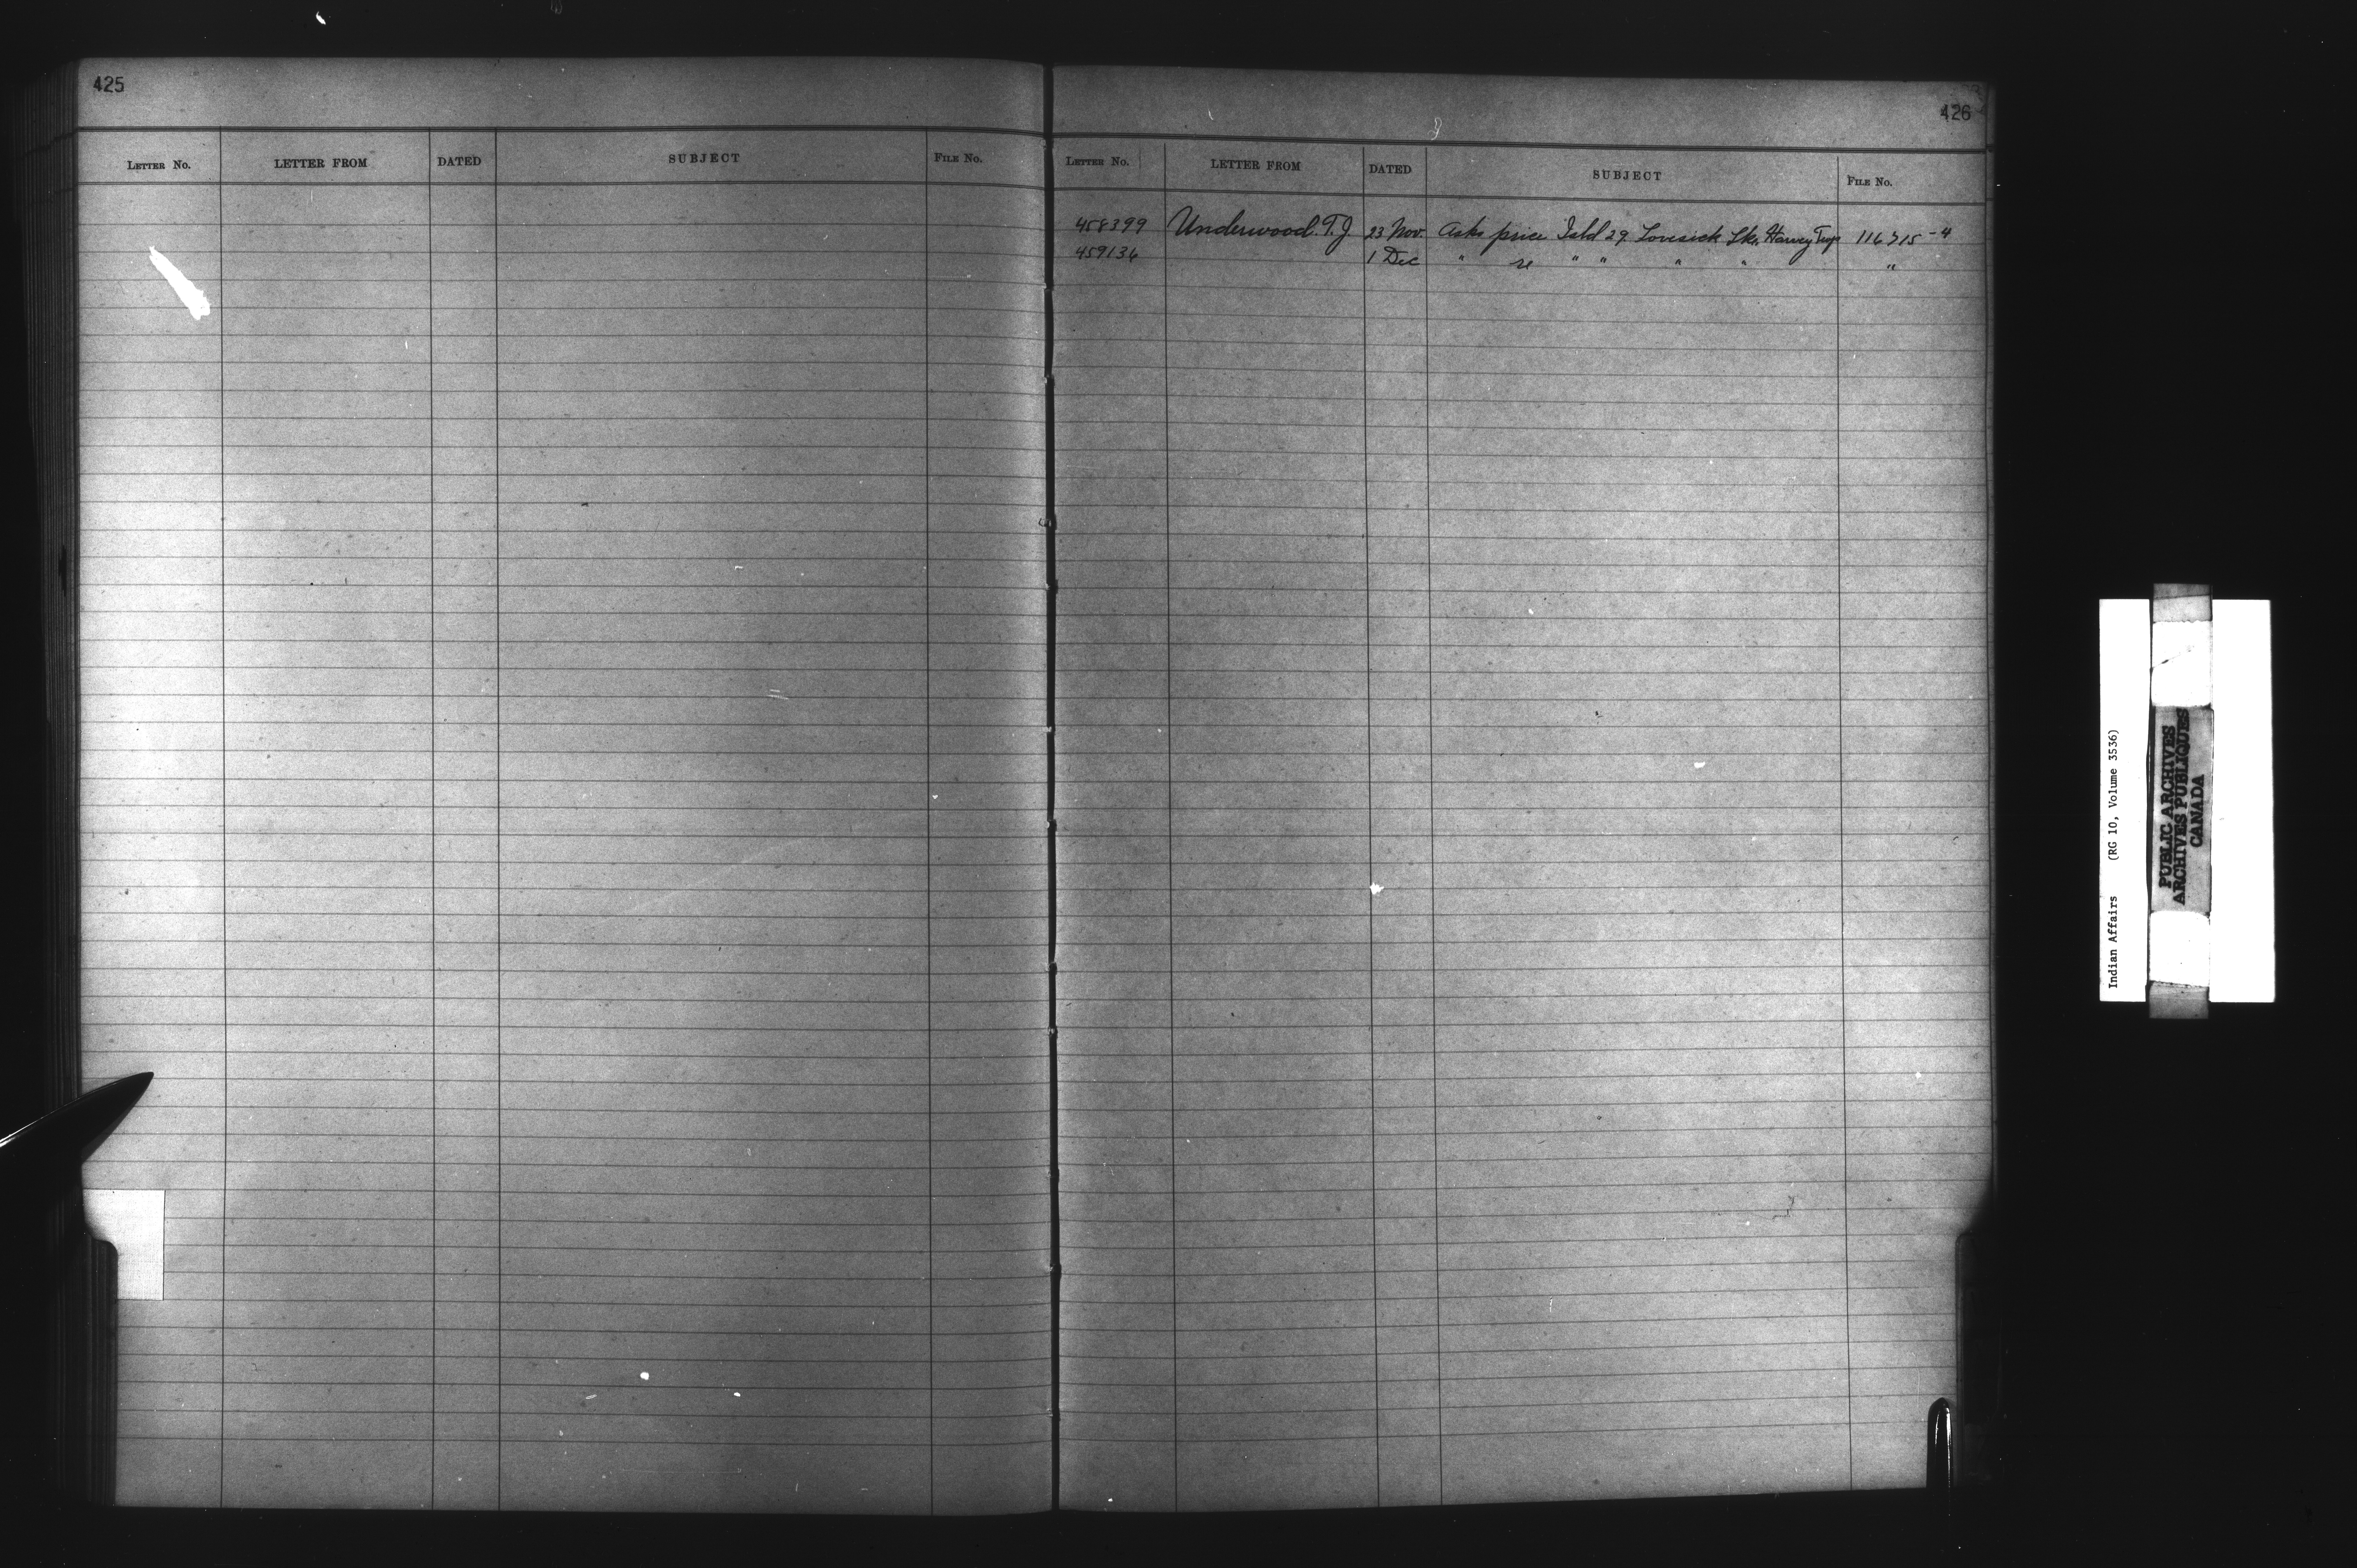 425
LETTER No. LETTER FROM DATED SUBJECT FILE No.
426
LETTER No. LETTER FROM DATED SUBJECT FILE No.
458399 Underwood. T. J. 23 Nov. Asks price Isld 29 Lovesick Lke. Harvey Twp 116715-4
459136 1 Dec " re " " " " "
Indian Affairs (RG 10, Volume 3536)
PUBLIC ARCHIVES
ARCHIVES PUBLIQUES
CANADA